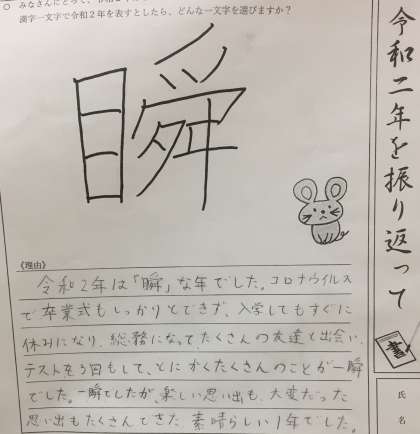 みなさんにとって、
漢字一文字で令和2年を表すとしたら、どんな一文字を選びますか？
瞬
令和二年を振り返って
書
《理由》
令和2年は「瞬」な年でした。コロナウイルス
で卒業式もしっかりとできず、入学してもすぐに
休みになり、総務になってたくさんの友達と出会い、
テストを3回もして、とにかくたくさんのことが一瞬
でした。一瞬でしたが、楽しい思い出も、大変だった
思い出もたくさんできた 素晴らしい1年でした。
氏
名